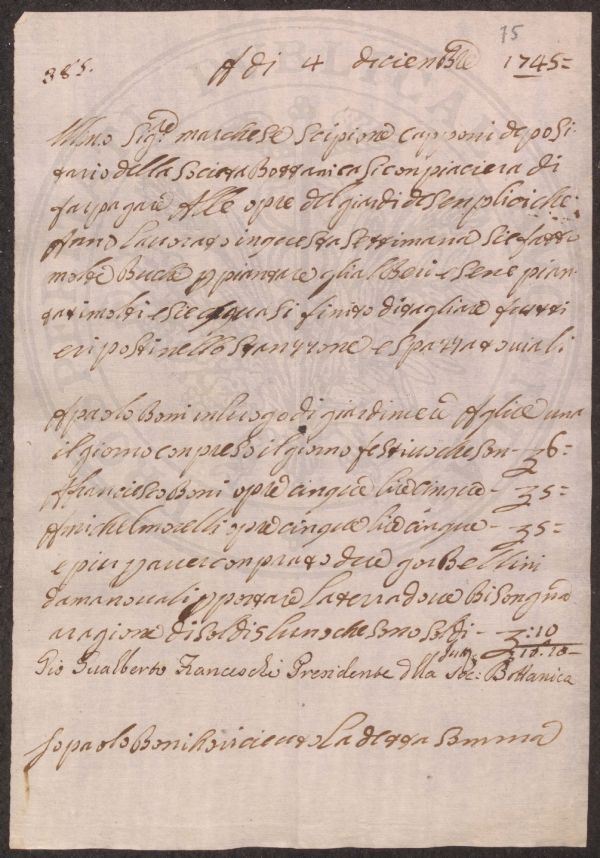 75
385.
A di 4 diciembre 1745=
Illmo Sigre marchese Scipione capponi deposi
tario della Societa Bottanica Si conpiacera di
far pagare Alle opre del giardi de Senplici che
Ano Lavorato in questa Settimana Sie fatto
molte Buche p piantare gli alberi e Sene pian
tati molti e Sie quasi finito di tagliare frutti
e riposti nello Stanzone e Spazzato viali
A paolo Boni in luogo di giardiniere A lire una
il giorno conpreso il giorno festivo che Son - 6=
A francesco Boni opre cinque lire cinque - 5=
A michel morelli opre cinque lire cinque - 5=
e piu p aver conprato due gorbellini
da mano uali p portare La terra doue Bisongna
a ragione di Soldi 5 luno che Sono Soldi - :10
16:10-
Gio Gualberto Franceschi Presidente dlla Soc: Bottanica
Io paolo Boni ho riceuto La detta Somma